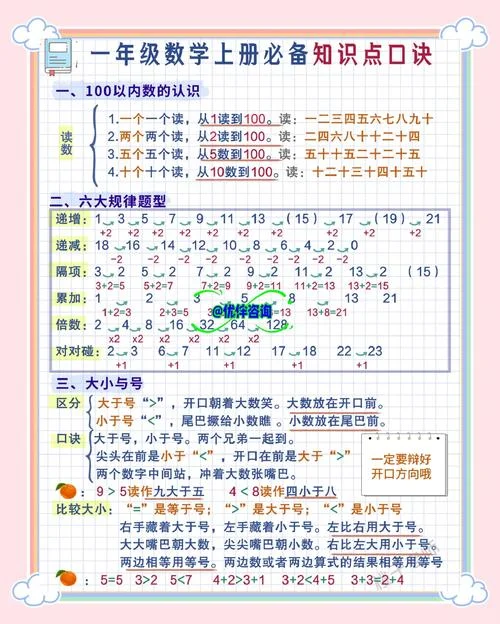 一年级数学上册必备知识点口诀
一、100以内数的认识
读数
1.一个一个读，从1读到100。读：一二三四五六七八九十
2.两个两个读，从2读到100。读：二四六八十十二十四
3.五个五个读，从5数到100。读：五十十五二十二十五
4.十个十个读，从10数到100。读：十二十三十四十五十
二、六大规律题型
递增：1 3 5 7 9 11 13 (15) 17 (19) 21
+2 +2 +2 +2 +2 +2 +2 +2 +2 +2
递减：18 16 14 12 10 8 6 4 2 0
-2 -2 -2 -2 -2 -2 -2 -2 -2
隔项：3 2 5 2 7 2 9 2 11 2 13 2 (15)
3+2=5 5+2=7 7+2=9 9+2=11 11+2=13 13+2=15
累加：1 2 3 5 8 13 21
1+2=3 2+3=5 =13 13+8=21
@优伴咨询
倍数：2 4 8 16 32 64 128
x2 x2 x2 x2 x2 x2
对对碰：2 3 6 7 11 12 17 18 22 23
+1 +1 +1 +1 +1
三、大小与号
区分 大于号“>”，开口朝着大数笑。大数放在开口前。
小于号“<”，尾巴撅给小数瞧。小数放在尾巴前。
口诀 大于号，小于号。两个兄弟一起到。
尖头在前是小于“<”，开口在前是大于“>”
两个数字中间站，冲着大数张嘴巴。
一定要辩好
开口方向哦
：9＞5读作九大于五 4＜8读作四小于八
比较大小：“=”是等于号；“>”是大于号；“<”是小于号
右手藏着大于号，左手藏着小于号。左比右用大于号。
大大嘴巴朝大数，尖尖嘴朝小数。右比左大用小于号。
两边相等用等号。两边数或者两边算式的结果相等用等号
：5=5 3>2 5<7 4+2>3+1 3+2<4+5 3+3=2+4